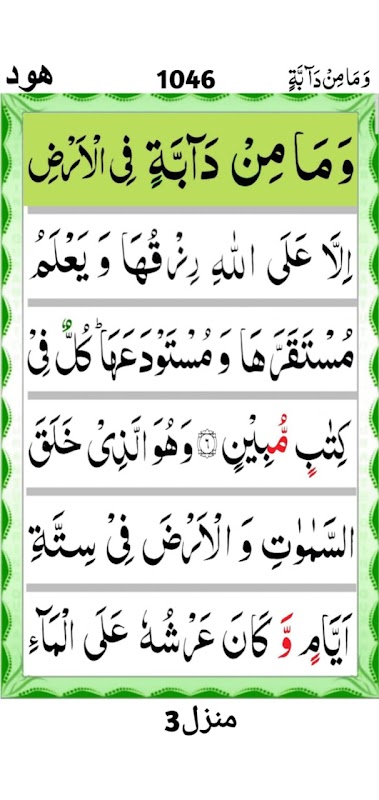 وَمَامِنْ دَآبَّةٍ 1046 هود
وَ مَا مِنْ دَآبَّةٍ فِی الْاَرْضِ
اِلَّا عَلَی اللّٰهِ رِزْقُهَا وَ یَعْلَمُ
مُسْتَقَرَّهَا وَ مُسْتَوْدَعَهَا ؕ كُلٌّ فِیْ
كِتٰبٍ مُّبِیْنٍ ۝۶ وَهُوَ الَّذِیْ خَلَقَ
السَّمٰوٰتِ وَ الْاَرْضَ فِیْ سِتَّةِ
اَیَّامٍ وَّ كَانَ عَرْشُهٗ عَلَی الْمَآءِ
منزل3